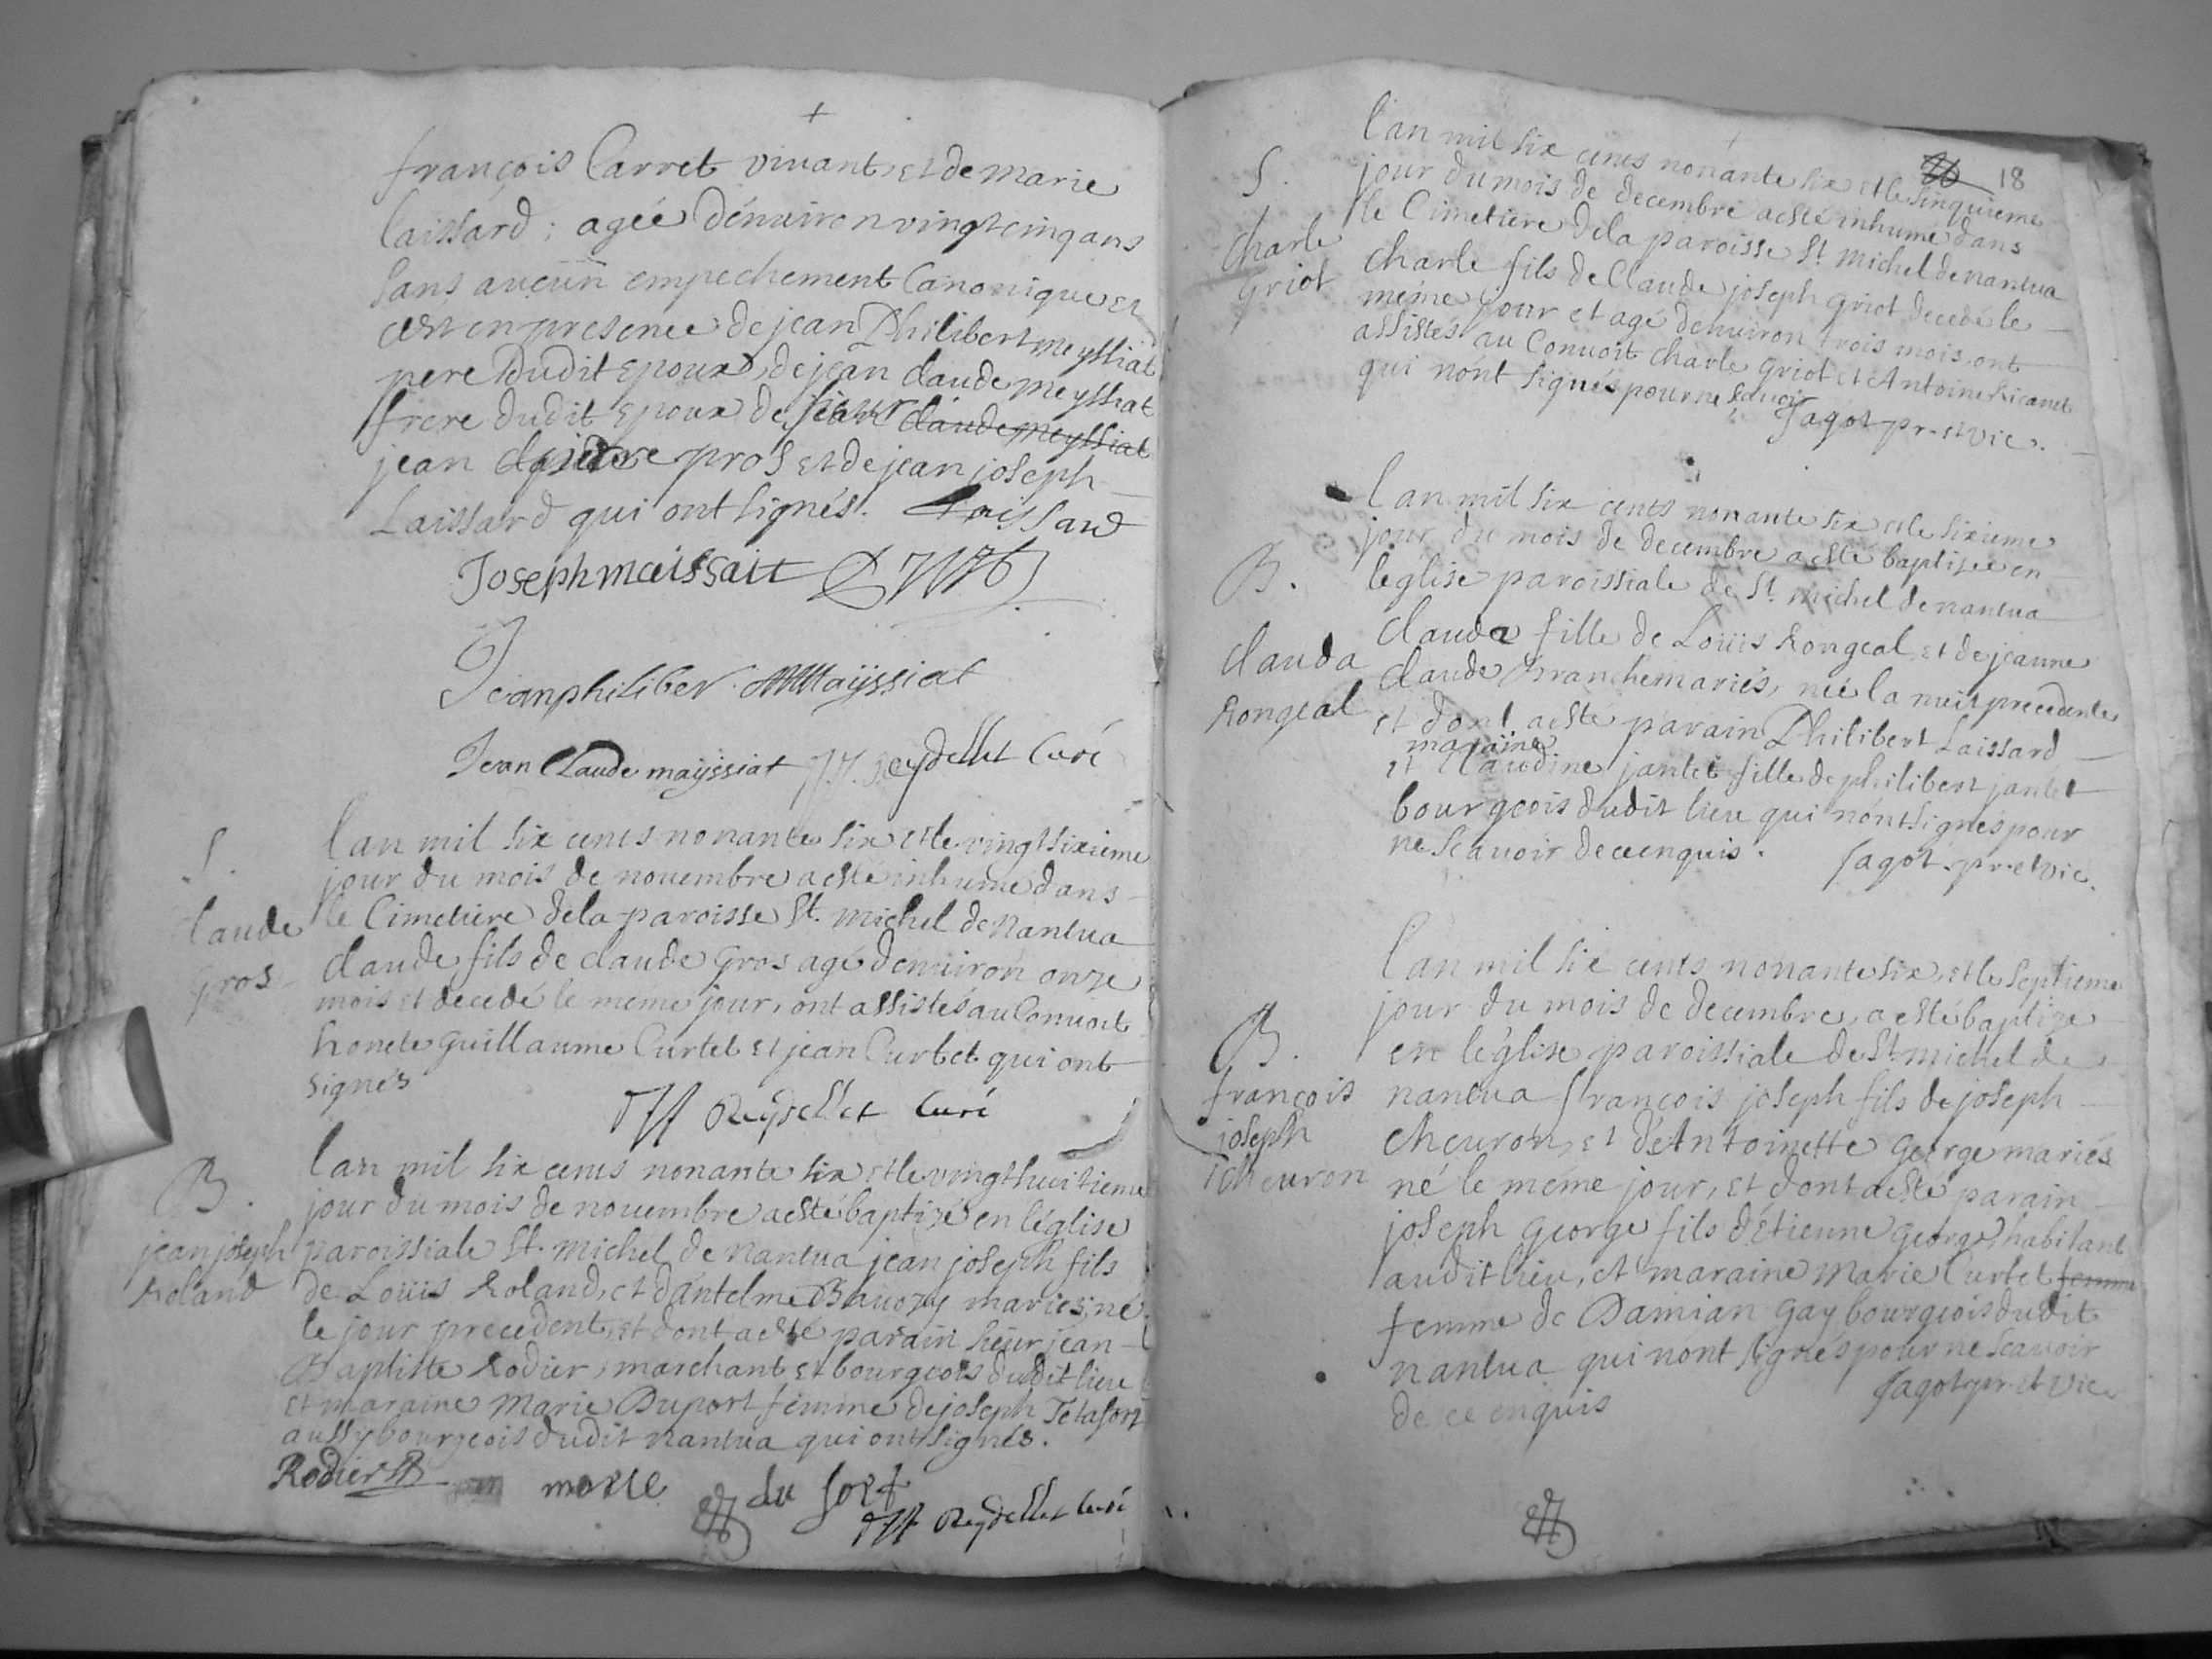 françois Carret vivant, et de marie
laissard ; agée d'énuiron vingt cinq ans
sans aucun empechement Canonique et
cest en presence de jean Philibert meyssiat
pere dudit epoux, de jean claude meyssiat
frere dudit epoux de sieur claude meyssiat
jean pros et de jean joseph
Laissard qui ont signés. Laissard
Joseph maissait
Jeanphiliber Maÿssiat
Jean Claude maÿssiat J.J. Reydellet Curé
S.
Claude
gros
l'an mil six cents nonante six et le vingt sixieme
jour du mois de nouembre a esté inhumé dans
le Cimetiere dela paroisse St. michel de Nantua
claude fils de claude gros agé d'enuiron onze
mois et decedé le meme jour, ont assistés au Conuoit
honete guillaume Curtet et jean Curtet qui ont
signés
JJ Reydellet Curé
B.
jean joseph
Roland
l'an mil six cents nonante six et le vingt huitieme
jour du mois de nouembre a esté baptizé en l'église
paroissiale St. michel de Nantua jean joseph fils
de Loüis Roland, et d'antelme Bauozy mariés, né
le jour precedent, et dont a esté parain sieur jean
Baptiste Rodier, marchant et bourgeois dudit lieu
et maraine Marie Duport femme de joseph Tetafort
aussy bourgeois dudit nantua qui ont signés.
Rodier morte du fort
JJ Reydellet Curé
18
S.
Charle
griot
l'an mil six cents nonante six et le sinquieme
jour du mois de decembre a esté inhumé dans
le Cimetiere dela paroisse St. michel de nantua
Charle fils de Claude joseph griot decedé le
méme jour et agé denuiron trois mois, ont
assistés au Conuoit charle griot et Antoine Ricanet
qui n'ont signés pour ne sauoir
Jagot pr. et vic.
B.
clauda
Rongeal
l'an mil six cents nonante six et le sixieme
jour du mois de decembre a esté baptisée en
leglise paroissiale de St. michel de nantua
clauda fille de Loüis Rongeal et de jeanne
claude branche mariés, née la nuit precedente
et dont a esté parain Philibert Laissard
maraine
et Claudine jantet fille de philibert jantet
bourgeois dudit lieu qui n'ont signés pour
ne scauoir de ce enquis. Jagot pr. et vic.
B.
françois
joseph
Cheuron
l'an mil six cents nonante six, et le septieme
jour du mois de decembre, a esté baptize
en l'église paroissiale de St michel de
nantua françois joseph fils de joseph
cheuron, et d'Antoinette george mariés
né le méme jour, et dont a esté parain
joseph george fils d'étienne george, habitant
audit lieu, et maraine marie Curtet femme
femme de Damian gay bourgeois dudit
nantua qui nont signés pour ne scauoir
de ce enquis Jagot pr. et vic.